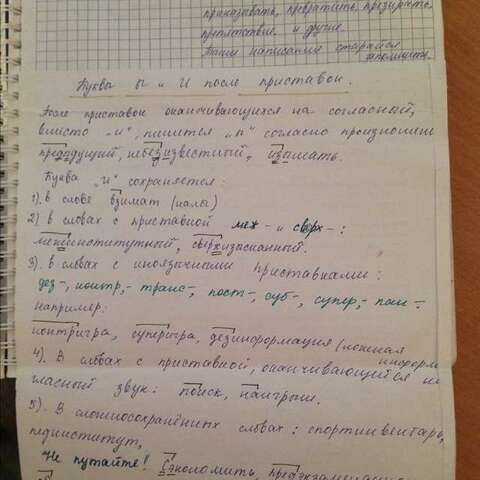 приказывать, превратить, презирать,
препятствие. и другие.
Такие написания старайся
запомнить.
Буквы Ы и И после приставок.
После приставок оканчивающихся на согласный,
вместо „и", пишется „ы" согласно произношению
предыдущий, небезызвестный, изымать.
Буква „И" сохраняется:
1). в слове взимат (налы)
2) в словах с приставкой меж- и сверх-:
межинститутный, сверхизысканный.
3). в словах с иноязычными приставками:
дез-, контр,- транс-, пост-, суб-, супер,- пан-.
например:
контригра, суперигра, дезинформация (ложная информ
4). В словах с приставкой, оканчивающейся на
гласный звук: поиск, наигрыш.
5). В сложносокращённых словах: спортинвентарь,
пединститут,
Не путайте! Сэкономить,